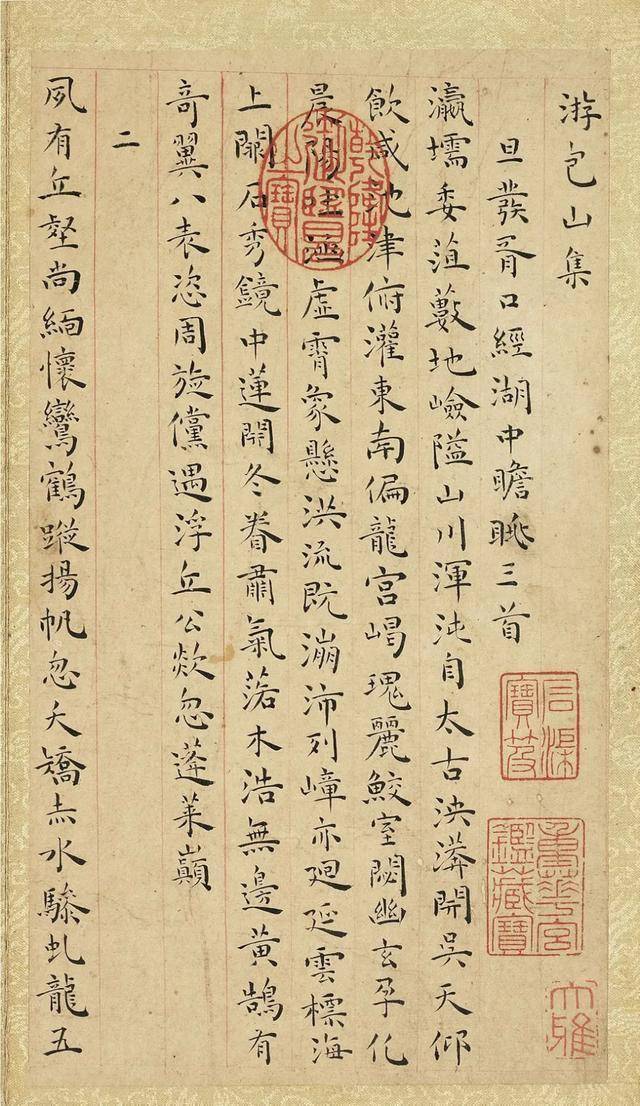 游包山集
旦發胥口經湖中瞻眺三首
瀛壖委菹藪地嶮隘山川渾沌自太古泱漭開吳天仰
飲咸池津俯灌東南偏龍宮嵑瑰麗鮫室閟幽玄孕化
晨陽吐涵虛霄象懸洪流既漰沛列嶂亦迴延雲標海
上闕石秀鏡中蓮開冬眷肅氣落木浩無邊黃鵠有
奇翼八表恣周旋儻遇浮丘公欻忽蓬萊巔
二
夙有丘壑尚緬懷鸞鶴蹤揚帆忽夭矯赤水驂虬龍五
乾隆御覽之寶
石渠寶笈
重華宮鑑藏寶